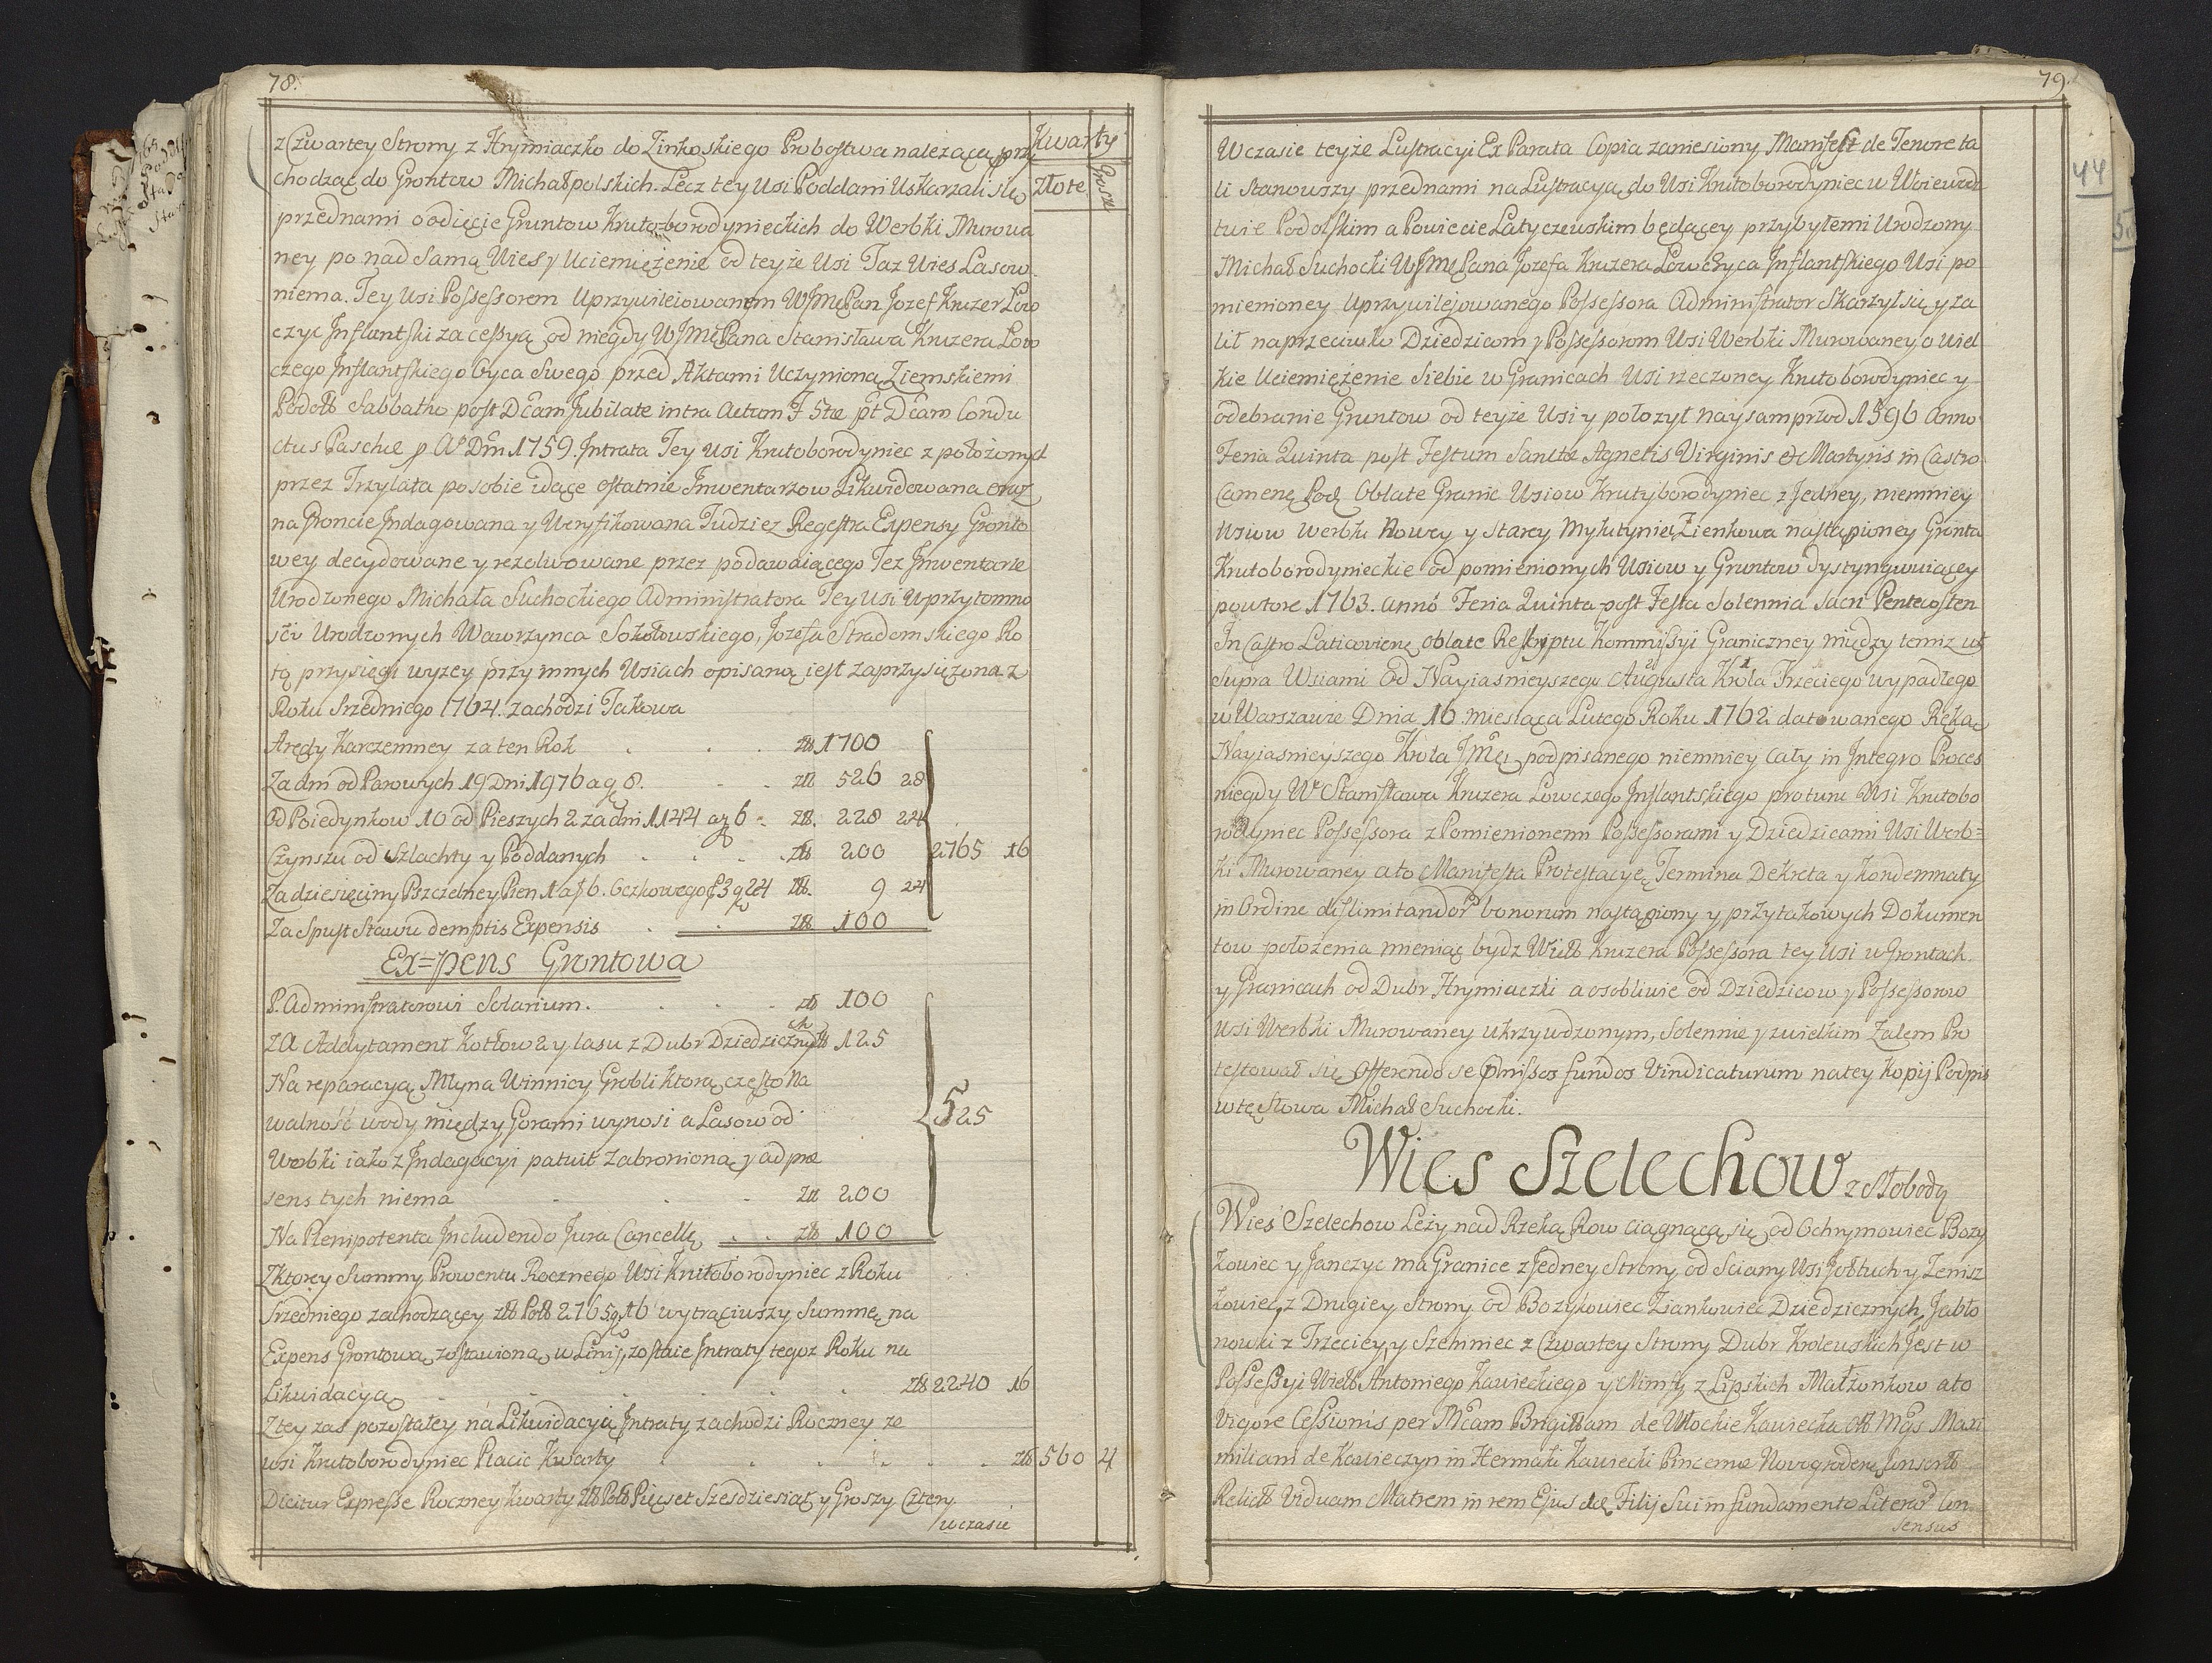 78.
Kwarty
złote
Grosze
z Czwartey Strony z Hrymiaczko do Zinkoskiego Probostwa nalezącą przy
chodząc do Grontow Michałpolskich. Lecz tey Usi Poddani Uskarzali się
przednami o odięcie Gruntow Kruto=borodynieckich do Werbki Murowa
ney ponad Samą Wies y Uciemiężenie od teyże Usi Taz Wies Lasow
niema. Tey Usi Possessorem Uprzywileiowanym WJMę Pan Jozef Kruzer Łow
czyc Inflantski za cessyą od niegdy WJMę Pana Stanisława Kruzera Łow
czego Inflantskiego Oyca Swego przed Aktami Uczynioną Ziemskiemi
Podolł Sabbatho post Dcam Jubilate intra Actum F 5tæ pt Dcam Condu
ctus Paschæ p Ao Dni 1759. Intrata Tey Usi Krutoborodyniec z położonych
przez Trzylata posobie idące ostatnie Inwentarzow Likwidowana oraz
na Groncie Indagowana y Weryfikowana Tudziez Regestra Expensy Gronto
wey decydowane y rezolwowane przez podawaiącego Tez Inwentarze
Urodzonego Michała Suchockiego Administratora Tey Usi w przytomno
sci Urodzonych Wawrzynca Sokołowskiego, Jozefa Stradomskiego Ro
tą przysięgi wyzey przy innych Wsiach opisaną iest zaprzysiężona z
Roku Srzedniego 1764. zachodzi Takowa
Arędy Karczemney za ten Rok . . . złł 1700
Za dni od Parowych 19 Dni 1976 a g 8. . . złł 526 28
Od Poiedynkow 10 od Pieszych 2 za dni 1144 a g 6 . złł. 228 24
Czynszu od Szlachty y Poddanych . . . . złł 200
2765 16
Za dziesięciny Pszczelney Pien 1 a f 6. Oczkowego f 3 g 24 złł. 9 24
Za Spust Stawu demptis Expensis . . złł 100
Ex=pens Grontowa
P. Administratorowi Solarium. . . . złł 100
Za Addytament Kotłow 2 y lasu z Dubr Dziedzicznych złł 125
Na reparacyą Młyna Winnicy Grobli ktorą często Na
walność wody między Gorami wynosi a Lasow od
525
Werbki iako z Indagacyi patuit zabroniona y ad præ
sens tych niema . . . złł 200
Na Plenipotenta Includendo Jura Cancellę . . złł 100
Zktorey Summy Prowentu Rocznego Usi Krutoborodyniec z Roku
Srzedniego zachodzącey złł Poll 2765 g 16 wytrąciwszy Summę na
Expens Grontową zostawioną w Linij, zostaie Intraty tegoz Roku na
Likwidacyą . . . . . . złł 2240 16
Ztey zas pozostałey na Likwidacyią Intraty zachodzi Roczney ze
wsi Krutoborodyniec Płacic Kwarty . . . . . złł 560 4
Dicitur Expresse Roczney Kwarty złł Poll Pięcset Szesdziesiąt y Groszy Cztery
wczasie
79.
44
Wczasie teyże Lustracyi Ex Parata Copia zaniesiony Manifest de Tenore ta
li Stanowszy przednami na Lustracyą do Usi Krutoborodyniec w Woiewodz
twie Podolskim a Powiecie Latyczewskim będącey przybyłemi Urodzony
Michał Suchocki WJMę Pana Jozefa Kruzera Łowczyca Inflantskiego Usi po
mienioney Uprzywilejowanego Possessora Administrator Skarzył się y ża
lił naprzeciwko Dziedzicom y Possessorom Usi Werbki Murowaney o wiel
kie Uciemiężenie Siebie w Granicach Usi rzeczoney Krutoborodyniec y
odebranie Gruntow od teyże Usi y położył naysamprzod 1596 Anno
Feria Quinta post Festum Sanctæ Agnetis Virginis et Martyris in Castro
Camenę Podę Oblate Granic Usiow Krutyborodyniec z Jedney, niemniey
Usiow Werbki Nowey y Starey Mykutyniec Zienkowa nastąpioney Gronta
Krutoborodynieckie od pomienionych Usiow y Gruntow dystyngwuiącey
powtore 1763. Anno Feria Quinta post Festa Solennia Sacri Pentecosten
In Castro Laticoviens Oblate Reskryptu Kommissyi Graniczney między temiz ut
Supra Wsiami Od Nayiasnieyszego Augusta Krola Trzeciego wypadłego
w Warszawie Dnia 16. miesiąca Lutego Roku 1762 datowanego Ręką
Nayiasnieyszego Krola JMci podpisanego niemniey cały in Integro Proces
niegdy W Stanisława Kruzera Łowczego Inflantskiego protunc Usi Krutobo
rodyniec Possessora z Pomienionemi Possessorami y Dziedzicami Usi Werb=
ki Murowaney a to Manifesta Protestacye, Termina Dekreta y Kondemnaty
in Ordine dislimitandor bonorum nastąpiony y przy takowych Dokumen
tow położenia mieniąc bydz Wiell Kruzera Possessora tey Usi w Grontach
y Granicach od Dubr Hrymiaczki a osobliwie od Dziedzicow y Possessorow
Usi Werbki Murowaney ukrzywdzonym, Solennie y zwielkim Zalem Pro
testował się Offerendo se pmissos fundos Vindicaturum na tey Kopij Podpis
w te Słowa Michał Suchocki.
Wies Szelechow z Słobody
Wieś Szelechow Leży nad Rzeką Row ciągnącą się od Ochrymowiec Bozy
kowiec y Janczyc ma Granice z Jedney Strony od Sciany Usi Jołtuch y Zenisz
kowiec, z Drugiey Strony od Bozykowiec Ziankowiec Dziedzicznych, Jabło
nowki z Trzeciey, y Szeliniec z Czwartey Strony Dubr Krolewskich Jest w
Possessyi Wiell Antoniego Kawieckiego y Anny z Lipskich Małżonkow a to
Vigore Cessionis per Mcam Brigittam de Włockie Kawiecka Olł Mcs Maxi
miliani de Kawieczyn in Hermaki Kawiecki Pincernæ Novogroden Consortt
Relictt Viduam Matrem in rem Ejus dę Filij Sui in fundamento Literar Con
sensus